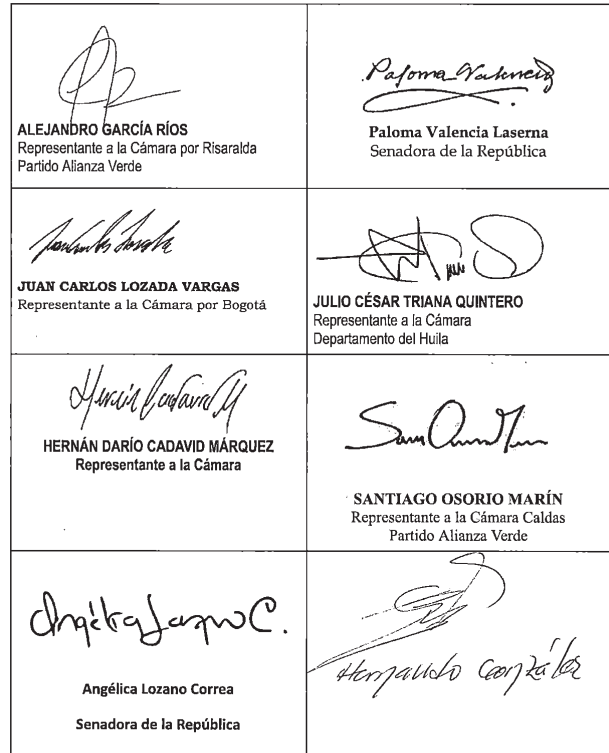 ALEJANDRO GARCÍA RÍOS
Representante a la Cámara por Risaralda
Partido Alianza Verde
Paloma Valencia
Paloma Valencia Laserna
Senadora de la República
JUAN CARLOS LOZADA VARGAS
Representante a la Cámara por Bogotá
JULIO CÉSAR TRIANA QUINTERO
Representante a la Cámara
Departamento del Huila
Hernán Cadavid M
HERNÁN DARÍO CADAVID MÁRQUEZ
Representante a la Cámara
SANTIAGO OSORIO MARÍN
Representante a la Cámara Caldas
Partido Alianza Verde
Angélica Lozano C.
Angélica Lozano Correa
Senadora de la República
Hernando González